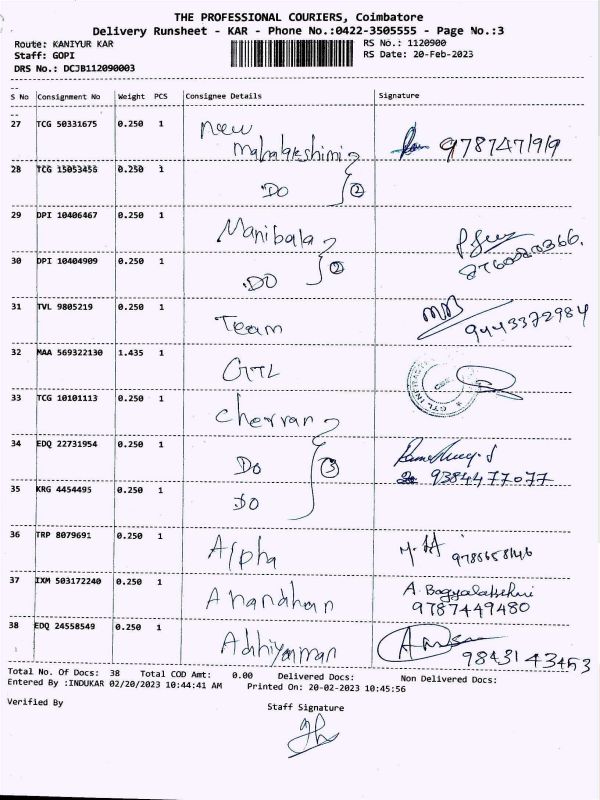 THE PROFESSIONAL COURIERS, Coimbatore
Delivery Runsheet - KAR - Phone No.:0422-3505555 - Page No.:3
Route: KANIYUR KAR RS No.: 1120900
Staff: GOPI RS Date: 20-Feb-2023
DRS No.: DCJB112090003
S No Consignment No Weight PCS Consignee Details Signature
27 TCG 50331675 0.250 1 New
Mahalakshimi 9787471919
28 TCG 15053455 0.250 1 DO 2
29 DPI 10406467 0.250 1 Manibala
30 DPI 10404909 0.250 1 DO 2 8760020366.
31 TVL 9805219 0.250 1 Team 9443372984
32 MAA 569322130 1.435 1 GTL
33 TCG 10101113 0.250 1 Cherran
34 EDQ 22731954 0.250 1 DO 3 9384477077
35 KRG 4454495 0.250 1 DO
36 TRP 8079691 0.250 1 Alpha
37 IXM 503172240 0.250 1 Anandhan A. Bagyalakshmi
9787449480
38 EDQ 24558549 0.250 1 Adhiyaman 9843143453
Total No. Of Docs: 38 Total COD Amt: 0.00 Delivered Docs: Non Delivered Docs:
Entered By :INDUKAR 02/20/2023 10:44:41 AM Printed On: 20-02-2023 10:45:56
Verified By Staff Signature